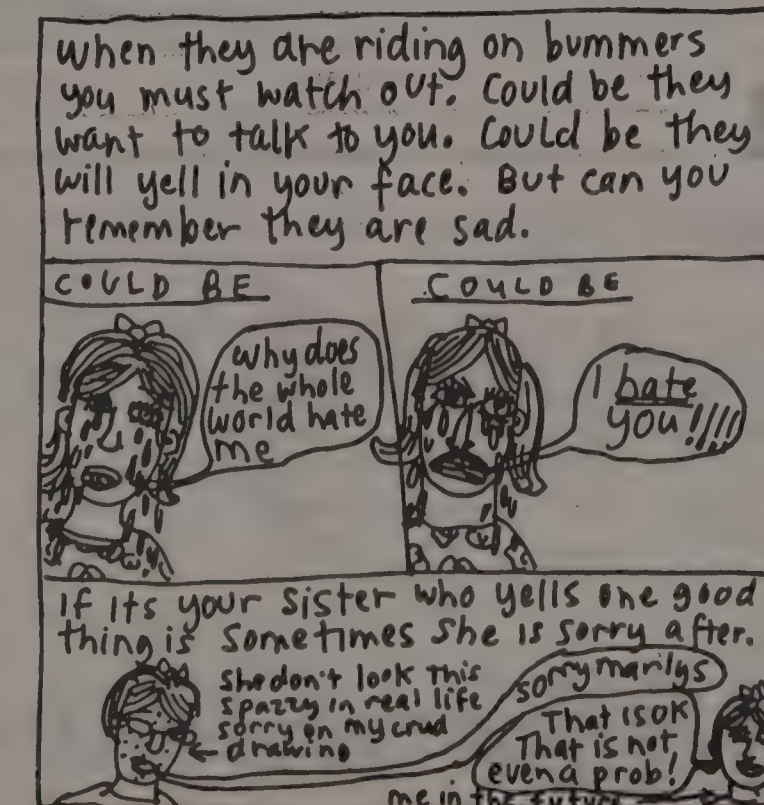 when they are riding on bummers
you must watch out. Could be they
want to talk to you. Could be they
will yell in your face. But can you
remember they are sad.
COULD BE
why does
the whole
world hate
me
COULD BE
I hate
you!!!!!
If its your sister who yells one good
thing is sometimes she is sorry after.
She don't look this
spazzy in real life
sorry on my crud
drawing
sorry marlys
That is ok
That is not
even a prob!
me in the future